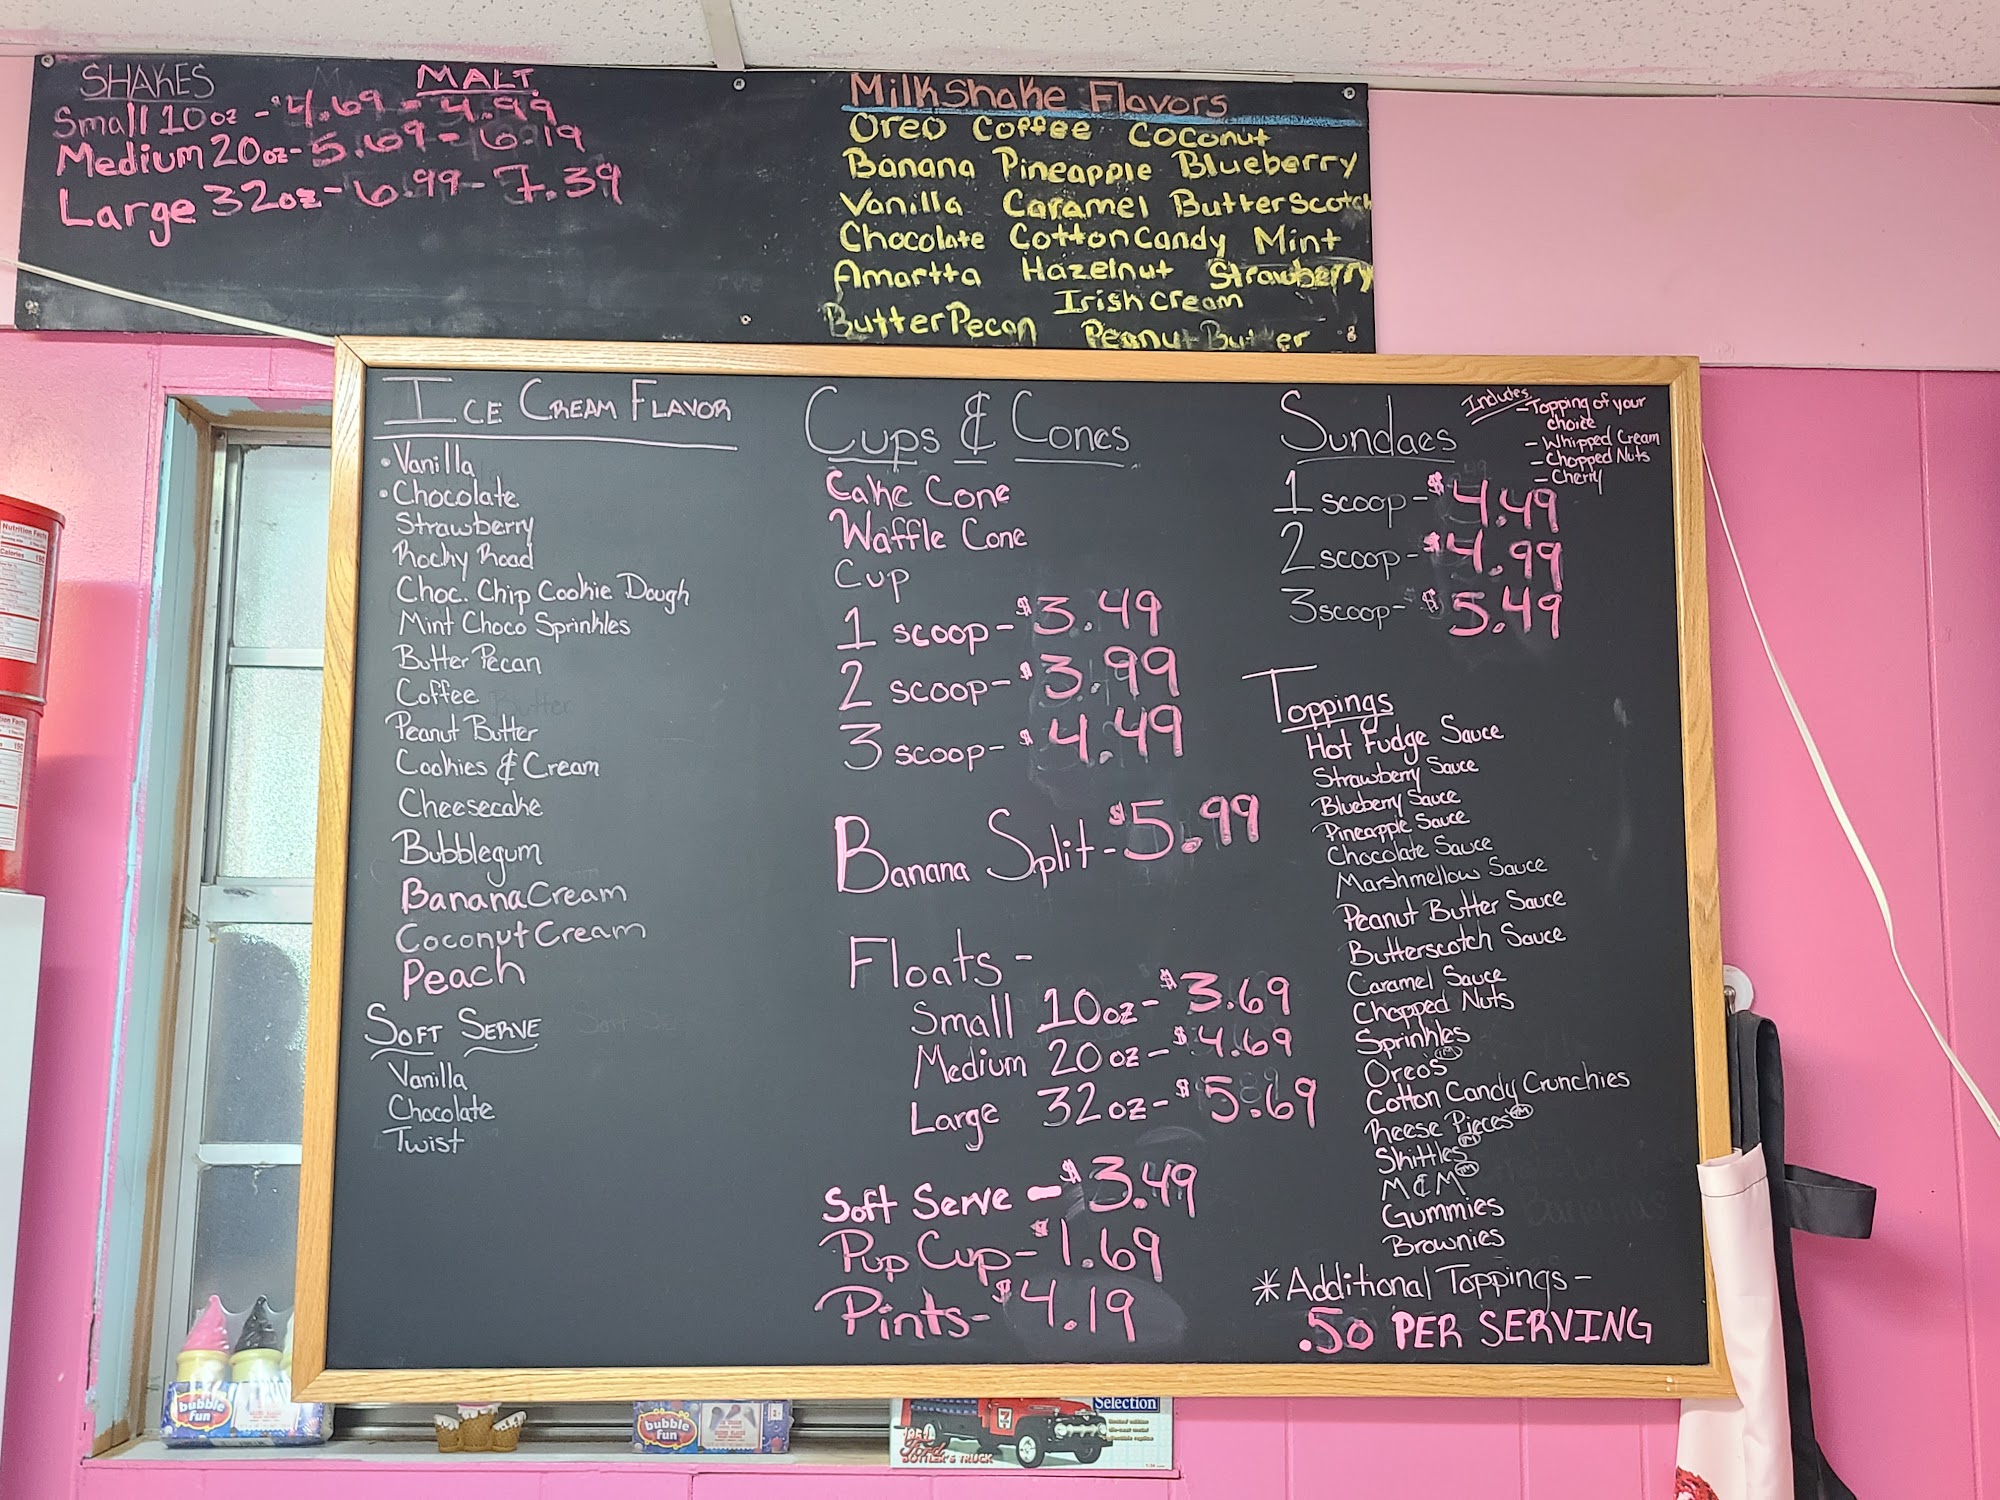 SHAKES MALT.
Small 10oz - $4.69 - 4.99
Medium 20oz - 5.69 - 6.19
Large 32oz - 6.99 - 7.39
MilkShake Flavors
Oreo Coffee Coconut
Banana Pineapple Blueberry
Vanilla Caramel ButterScotch
Chocolate Cotton Candy Mint
Amartta Hazelnut Strawberry
Irish Cream
Butter Pecan Peanut Butter
ICE CREAM FLAVOR
• Vanilla
• Chocolate
Strawberry
Rocky Road
Choc. Chip Cookie Dough
Mint Choco Sprinkles
Butter Pecan
Coffee
Peanut Butter
Cookies & Cream
Cheesecake
Bubblegum
Banana Cream
Coconut Cream
Peach
SOFT SERVE
Vanilla
Chocolate
Twist
Cups & Cones
Cake Cone
Waffle Cone
Cup
1 scoop - $3.49
2 scoop - $3.99
3 scoop - $4.49
Banana Split - $5.99
Floats -
Small 10oz - $3.69
Medium 20oz - $4.69
Large 32oz - $5.69
Soft Serve - $3.49
Pup Cup - $1.69
Pints - $4.19
Sundaes
Includes
- Topping of your
choice
- Whipped Cream
- Chopped Nuts
- Cherry
1 scoop - $4.49
2 scoop - $4.99
3 scoop - $5.49
Toppings
Hot Fudge Sauce
Strawberry Sauce
Blueberry Sauce
Pineapple Sauce
Chocolate Sauce
Marshmellow Sauce
Peanut Butter Sauce
Butterscotch Sauce
Caramel Sauce
Chopped Nuts
Sprinkles
Oreo's™
Cotton Candy Crunchies
Reese Pieces™
Skittles™
M&M™
Gummies
Brownies
*Additional Toppings -
.50 PER SERVING
Nutrition Facts
Calories 190
bubble
fun
bubble
fun
Selection
Ford
BOTTLER'S TRUCK